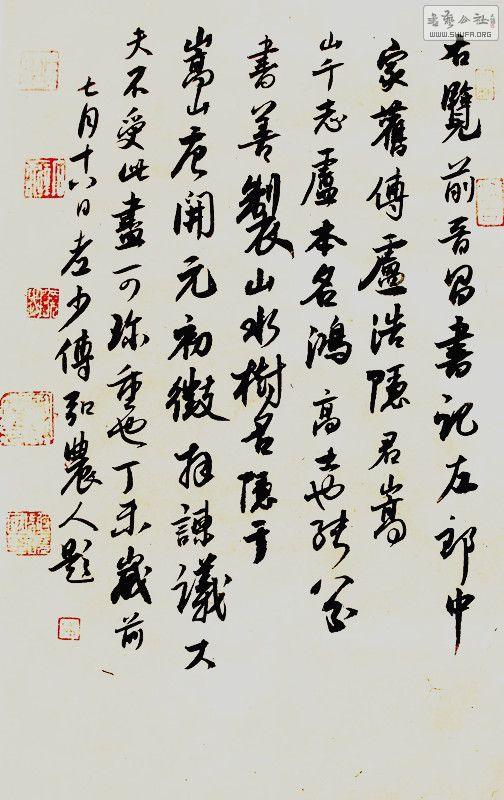 书艺公社
WWW.SHUFA.ORG
右覽前晉昌書記左郎中
家舊傳盧浩隱君嵩
山十志盧本名鴻高士也能八分
書善製山水樹石隱于
嵩山唐開元初徵拜諫議大
夫不受此畫可珍重也丁未歲前
七月十八日老少傅弘農人題